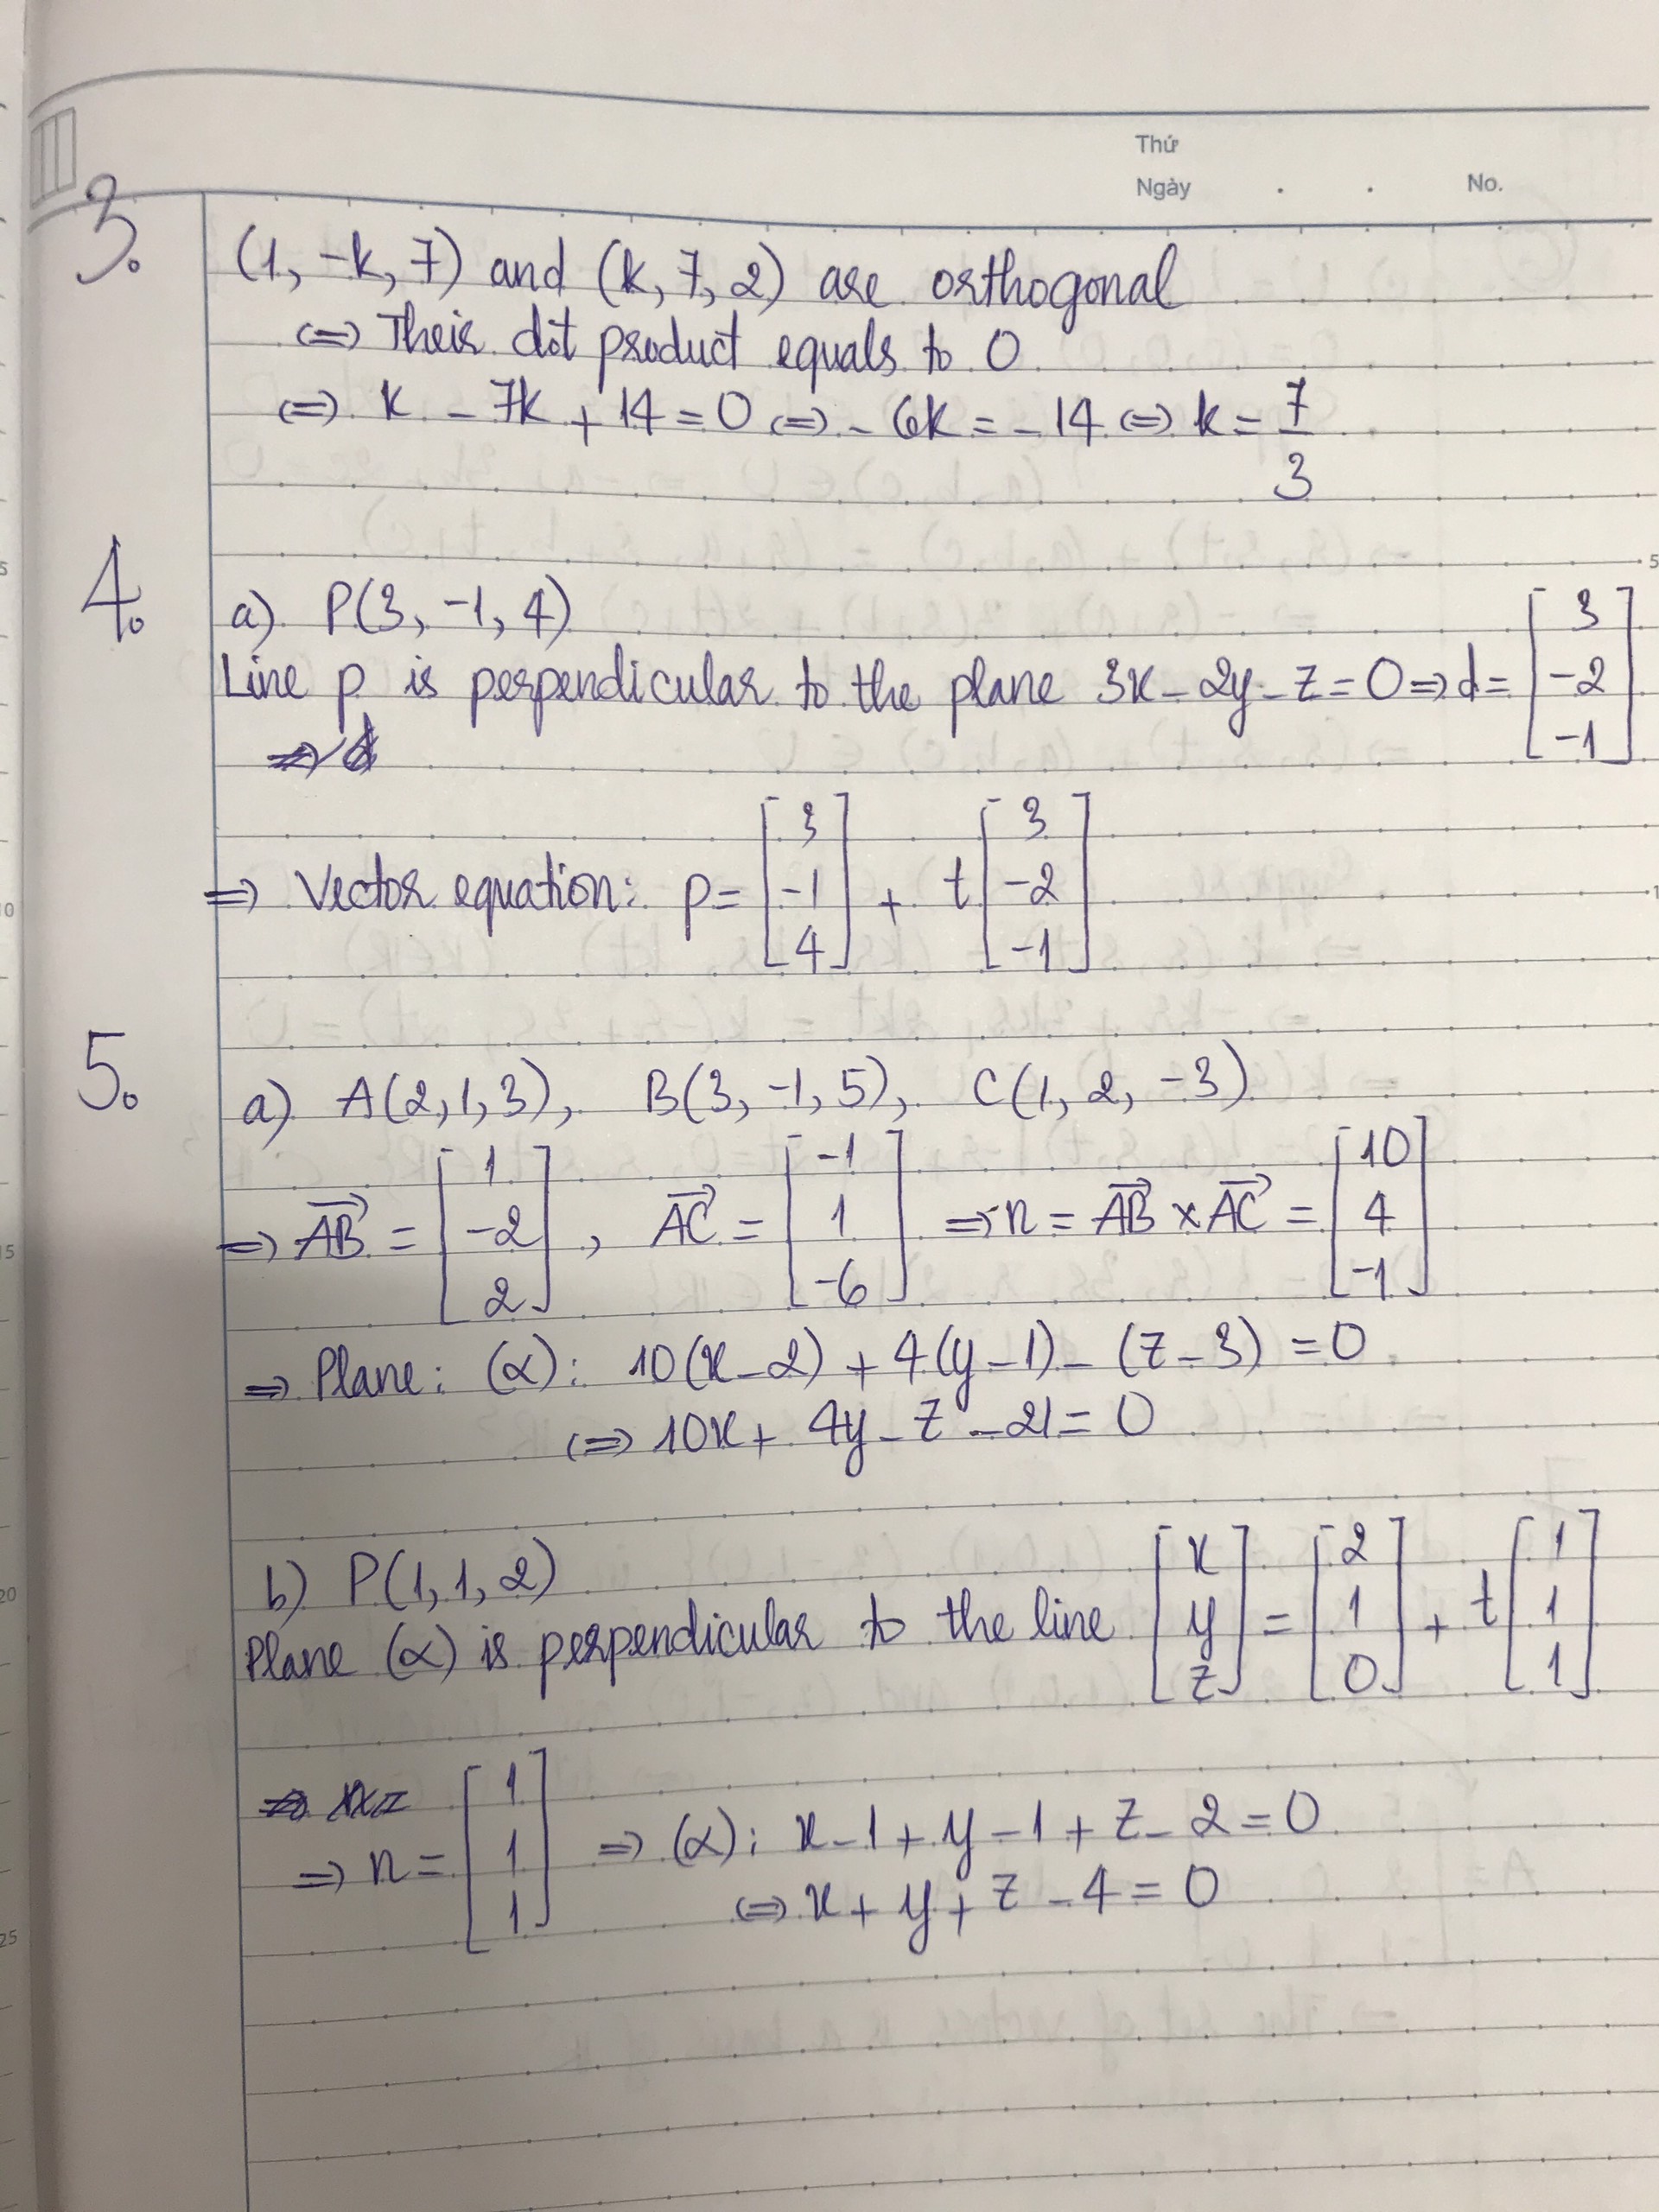 Thứ
Ngày . . No.
3. (1, -k, 7) and (k, 7, 2) are orthogonal
<=> Their dot product equals to 0
<=> k - 7k + 14 = 0 <=> - 6k = - 14 <=> k = 7/3
4. a) P(3, -1, 4)
Line p is perpendicular to the plane 3x - 2y - z = 0 => d = [3 -2 -1]
=> Vector equation: p = [3 -1 4] + t [3 -2 -1]
5. a) A(2, 1, 3), B(3, -1, 5), C(1, 2, -3)
=> AB = [1 -2 2], AC = [-1 1 -6] => n = AB x AC = [10 4 -1]
=> Plane: (α): 10(x - 2) + 4(y - 1) - (z - 3) = 0
<=> 10x + 4y - z - 21 = 0
b) P(1, 1, 2)
Plane (α) is perpendicular to the line [x y z] = [2 1 0] + t [1 1 1]
=> n = [1 1 1] => (α): x - 1 + y - 1 + z - 2 = 0
<=> x + y + z - 4 = 0